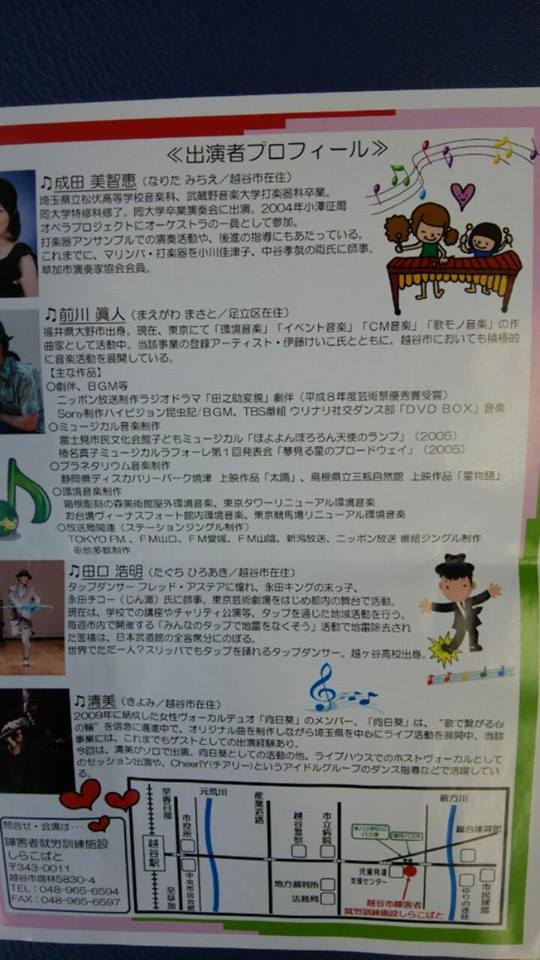 ≪出演者プロフィール≫
♫成田 美智恵（なりた みちえ／越谷市在住）
埼玉県立松伏高等学校音楽科、武蔵野音楽大学打楽器科卒業。
同大学特修科修了。同大学卒業演奏会に出演。2004年小澤征爾
オペラプロジェクトにオーケストラの一員として参加。
打楽器アンサンブルでの演奏活動や、後進の指導にもあたっている。
これまでに、マリンバ・打楽器を小川佳津子、中谷孝哉の両氏に師事。
草加市演奏家協会会員。
♫前川 眞人（まえがわ まさと／足立区在住）
福井県大野市出身。現在、東京にて「環境音楽」「イベント音楽」「CM音楽」「歌モノ音楽」の作
曲家として活動中。当該事業の登録アーティスト・伊藤けいこ氏とともに、越谷市においても積極的
に音楽活動を展開している。
【主な作品】
○劇伴、BGM等
ニッポン放送制作ラジオドラマ「田之助変貌」劇伴（平成8年度芸術祭優秀賞受賞）
Sony制作ハイビジョン昆虫記/BGM、TBS番組 ウリナリ社交ダンス部「DVD BOX」音楽
○ミュージカル音楽制作
富士見市民文化会館子どもミュージカル「ぽよよんぽろろん天使のランプ」（2005）
椿名真子ミュージカルラフォーレ第1回発表会「夢見る星のブロードウェイ」（2005）
○プラネタリウム音楽制作
静岡県ディスカバリーパーク焼津 上映作品「太陽」、島根県立三瓶自然館 上映作品「星物語」
○環境音楽制作
箱根彫刻の森美術館屋外環境音楽、東京タワーリニューアル環境音楽
お台場ヴィーナスフォート館内環境音楽、東京競馬場リニューアル環境音楽
○放送局関連（ステーションジングル制作）
TOKYO FM、FM山口、FM愛媛、FM山陰、新潟放送、ニッポン放送 番組ジングル制作
※他多数制作
♫田口 浩明（たぐち ひろあき／越谷市在住）
タップダンサー フレッド・アステアに憧れ、永田キングの末っ子、
永田チコー（じん満）氏に師事。東京芸術劇場をはじめ都内の舞台で活動。
現在は、学校での講座やチャリティ公演等、タップを通じた地域活動を行う。
毎週市内で開催する「みんなのタップで地雷をなくそう」活動で地雷除去され
た面積は、日本武道館の全客席分にのぼる。
世界でただ一人？スリッパでもタップを踊れるタップダンサー。越ヶ谷高校出身。
♫清美（きよみ／越谷市在住）
2009年に結成した女性ヴォーカルデュオ「向日葵」のメンバー。「向日葵」は、“歌で繋がる心
の輪”を信念に邁進中で、オリジナル曲を制作しながら埼玉県を中心にライブ活動を展開中。当該
事業には、これまでもゲストとしての出演経験あり。
今回は、清美がソロで出演。向日葵としての活動の他、ライブハウスでのホストヴォーカルとして
のセッション出演や、CheerlY(チアリー)というアイドルグループのダンス指導などで活躍してい
る。
問合せ・会場は…
障害者就労訓練施設
しらこばと
〒343-0011
越谷市増林5830-4
TEL：048-965-6594
FAX：048-965-6597
至春日部
越谷駅
至草加
市役所
中央市民会館
元荒川
産業道路
越谷警察
市立病院
地方裁判所
法務局
児童発達
支援センター
新方川
総合体育館
市民球場
ゆりのき荘
越谷市障害者
就労訓練施設しらこばと